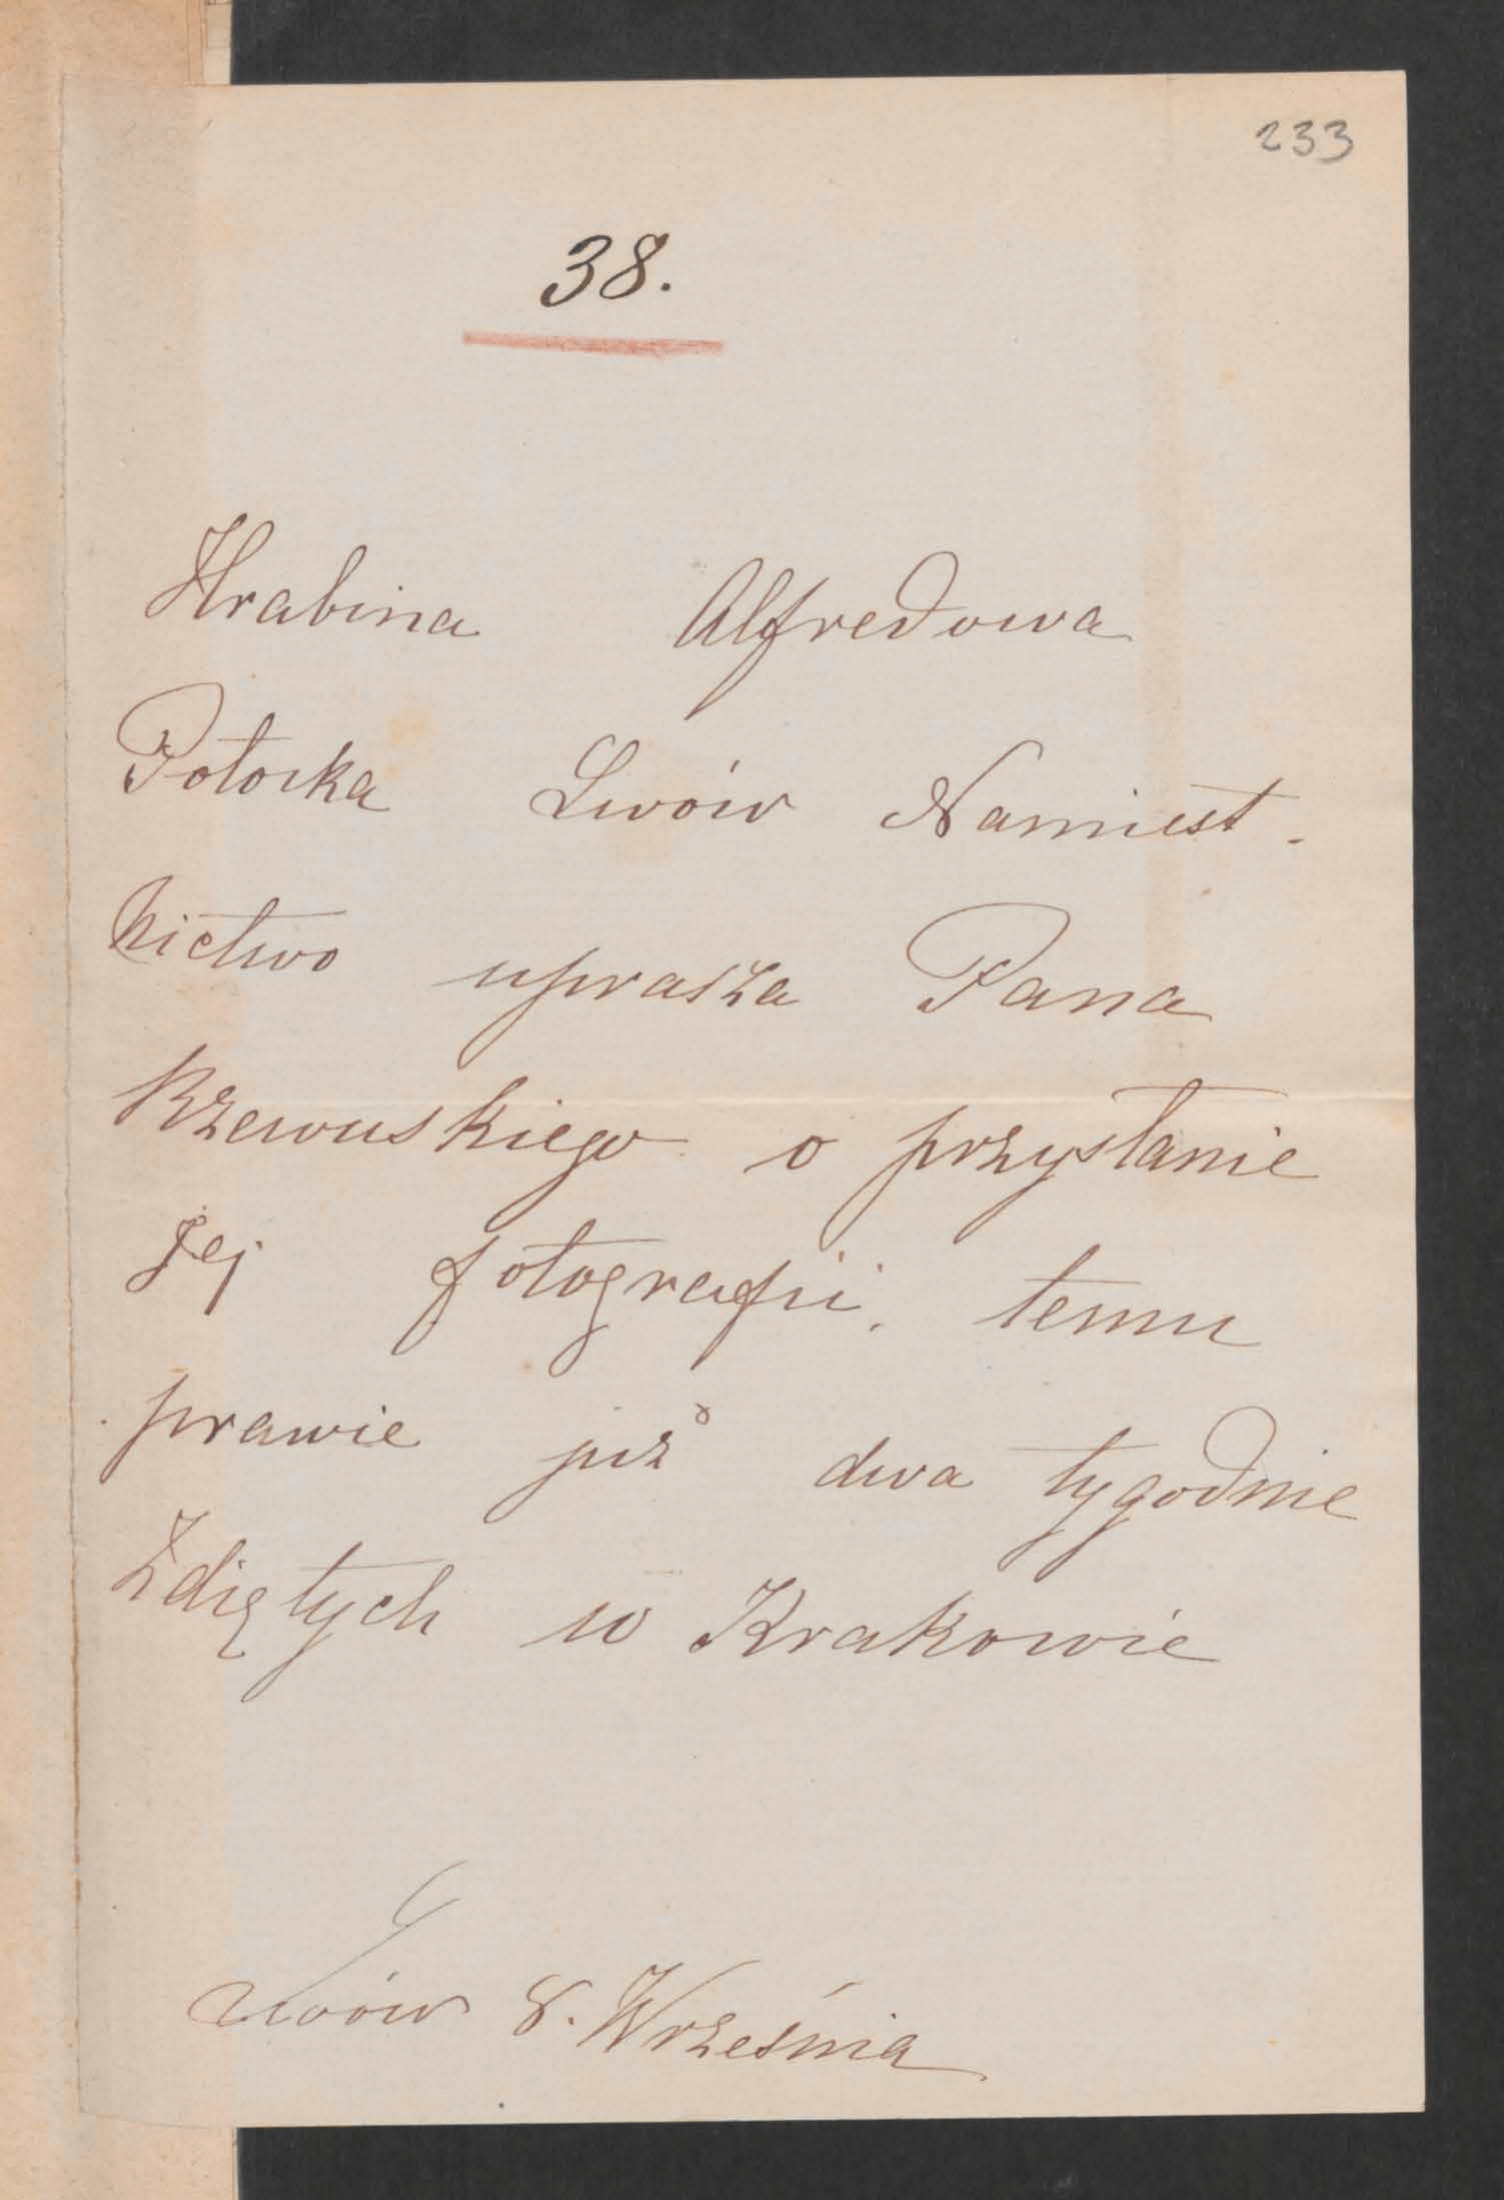 233
38.
Hrabina Alfredowa
Potocka Lwów Namiest-
nictwo uprasza Pana
Rzewuskiego o przysłanie
Jej fotografii, temu
prawie już dwa tygodnie
Zdiętych w Krakowie
Lwów 8. Września